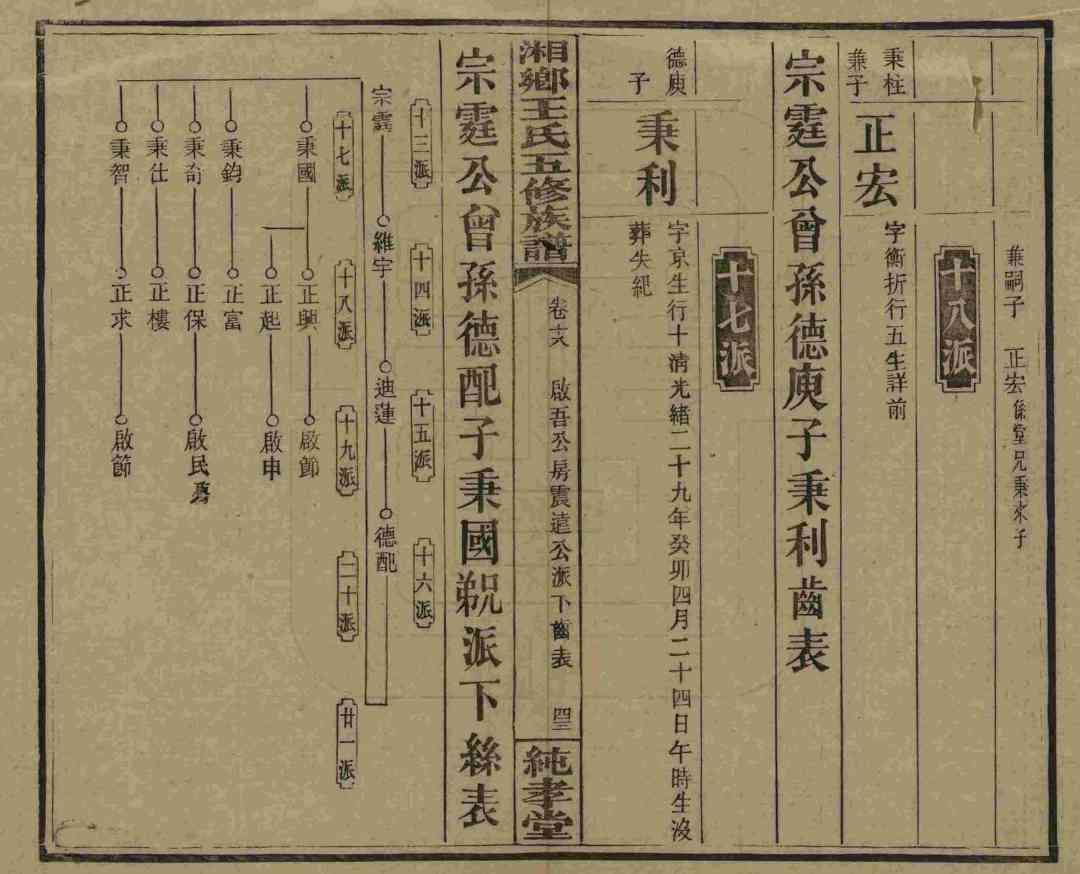 兼嗣子　正宏係堂兄秉來子
十八派
秉柱
兼子
正宏
字衡折行五生詳前
宗霆公曾孫德庚子秉利齒表
十七派
德庚
子
秉利
字京生行十清光緒二十九年癸卯四月二十四日午時生沒
葬失紀
湘鄉王氏五修族譜
啟吾公房震遠公派下齒表
純孝堂
宗霆公曾孫德配子秉國派下絲表
十三派　十四派　十五派　十六派
宗霆　維宇　迪蓮　德配
十七派　十八派　十九派　二十派　廿一派
秉國　正興　啟節
正起　啟申
秉鈞　正富
秉奇　正保　啟民
秉仕　正樓
秉智　正求　啟節